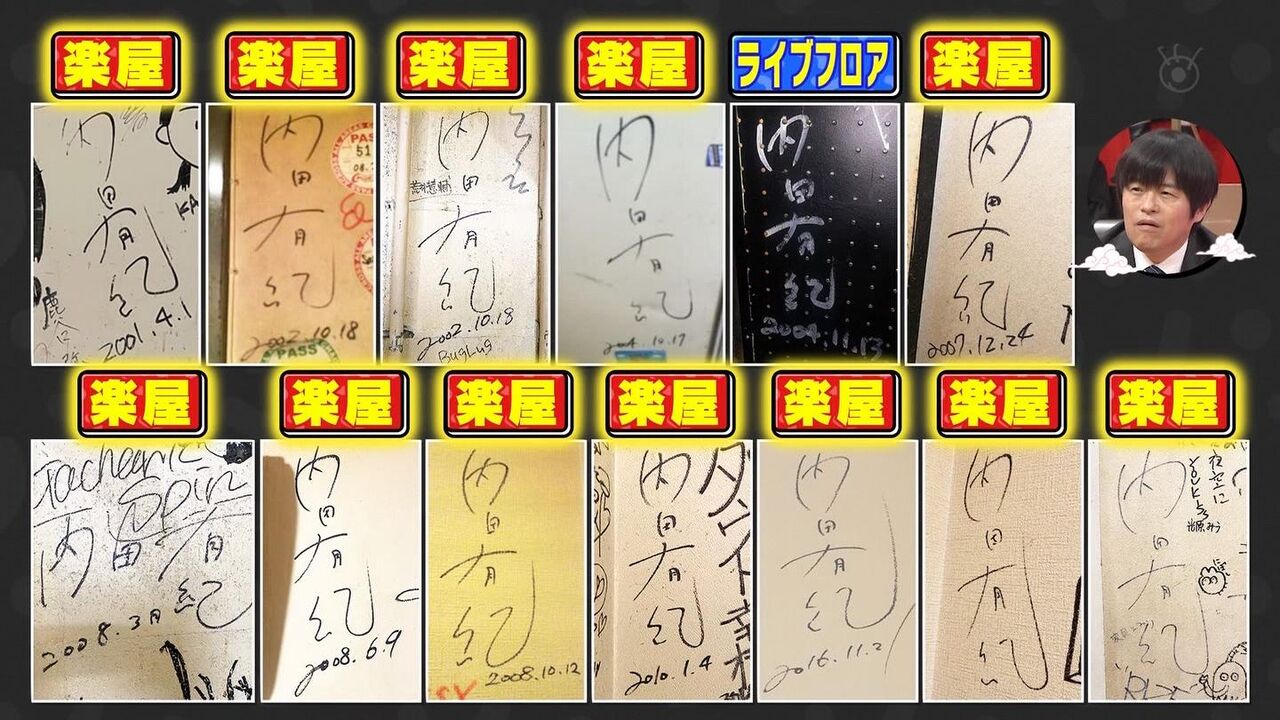 楽屋
楽屋
楽屋
楽屋
ライブフロア
楽屋
内田有紀
2001.4.1
PASS
51
内田有紀
2002.10.18
PASS
内田有紀
2002.10.18
BugLug
内田有紀
内田有紀
2004.11.13
内田有紀
2007.12.24
楽屋
楽屋
楽屋
楽屋
楽屋
楽屋
楽屋
Spin
内田有紀
2008.3月
内田有紀
2008.6.9
内田有紀
2008.10.12
内田有紀
2010.1.4
内田有紀
2016.11.21
内田有紀
内田有紀